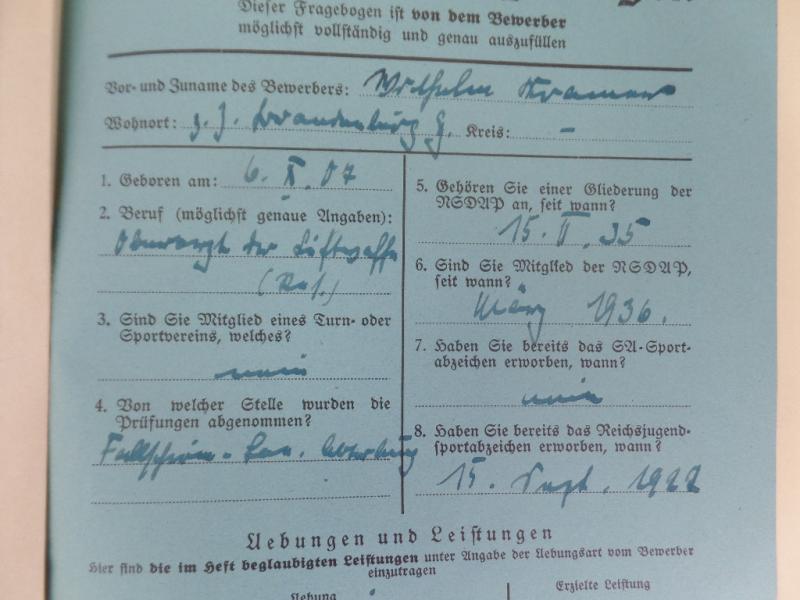 Dieser Fragebogen ist von dem Bewerber
möglichst vollständig und genau auszufüllen
Vor- und Zuname des Bewerbers: Wilhelm Kramer
Wohnort: z. Z. Brandenburg Kreis: –
1. Geboren am: 6. X. 07
2. Beruf (möglichst genaue Angaben):
Oberarzt der Luftwaffe
(Res.)
3. Sind Sie Mitglied eines Turn- oder
Sportvereins, welches?
nein
4. Von welcher Stelle wurden die
Prüfungen abgenommen?
Fallschirm-San. Abteilung
5. Gehören Sie einer Gliederung der
NSDAP an, seit wann?
15. II. 35
6. Sind Sie Mitglied der NSDAP,
seit wann?
März 1936.
7. Haben Sie bereits das SA-Sport-
abzeichen erworben, wann?
nein
8. Haben Sie bereits das Reichsjugend-
sportabzeichen erworben, wann?
15. Sept. 1922
Uebungen und Leistungen
Hier sind die im Heft beglaubigten Leistungen unter Angabe der Uebungsart vom Bewerber
einzutragen
Uebung Erzielte Leistung